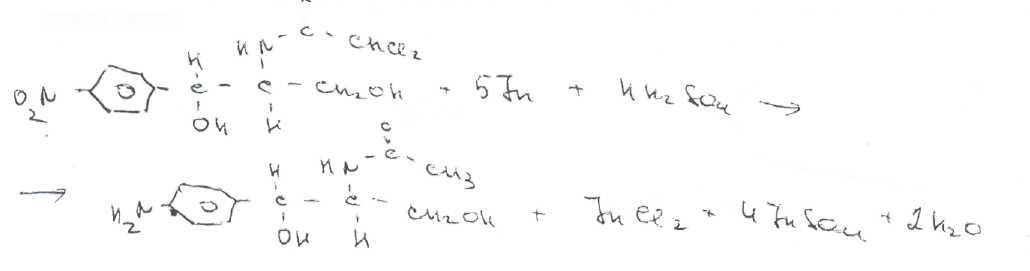 HN - C - CHCl₂
H
O₂N - C - C - CH₂OH + 5Zn + 4H₂SO₄ →
OH H
O
H HN - C - CH₃
→ H₂N - C - C - CH₂OH + ZnCl₂ + 4ZnSO₄ + 2H₂O
OH H